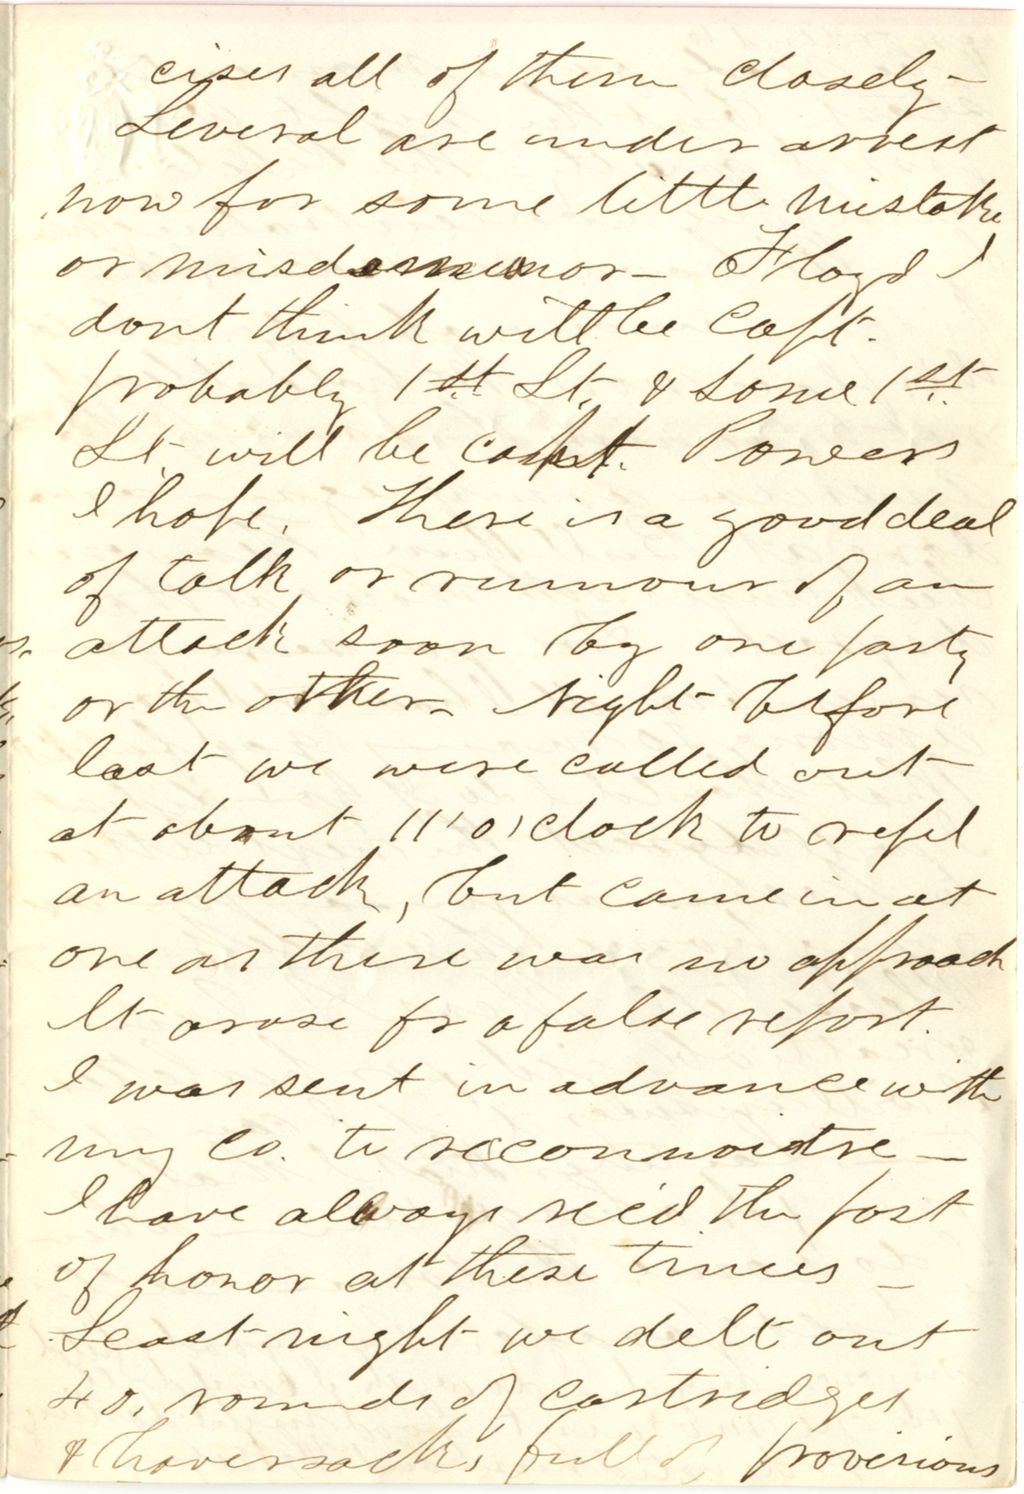 cises all of them closely -
Several are under arrest
now for some little mistake
or misdemeanor - Floyd I
dont think will be Capt.
probably 1st. Lt. & some 1st.
Lt. will be capt. Powers
I hope. There is a good deal
of talk or rumour of an
attack soon by one party
or the other - Night before
last we were called out
at about 11'o'clock to repel
an attack, but came in at
one as there was no approach
It arose fr a false report.
I was sent in advance with
my Co. to reconnoitre -
I have always rec'd the post
of honor at these times -
Least night we delt out
40. rounds of cartridges
& haversacks full of provisions